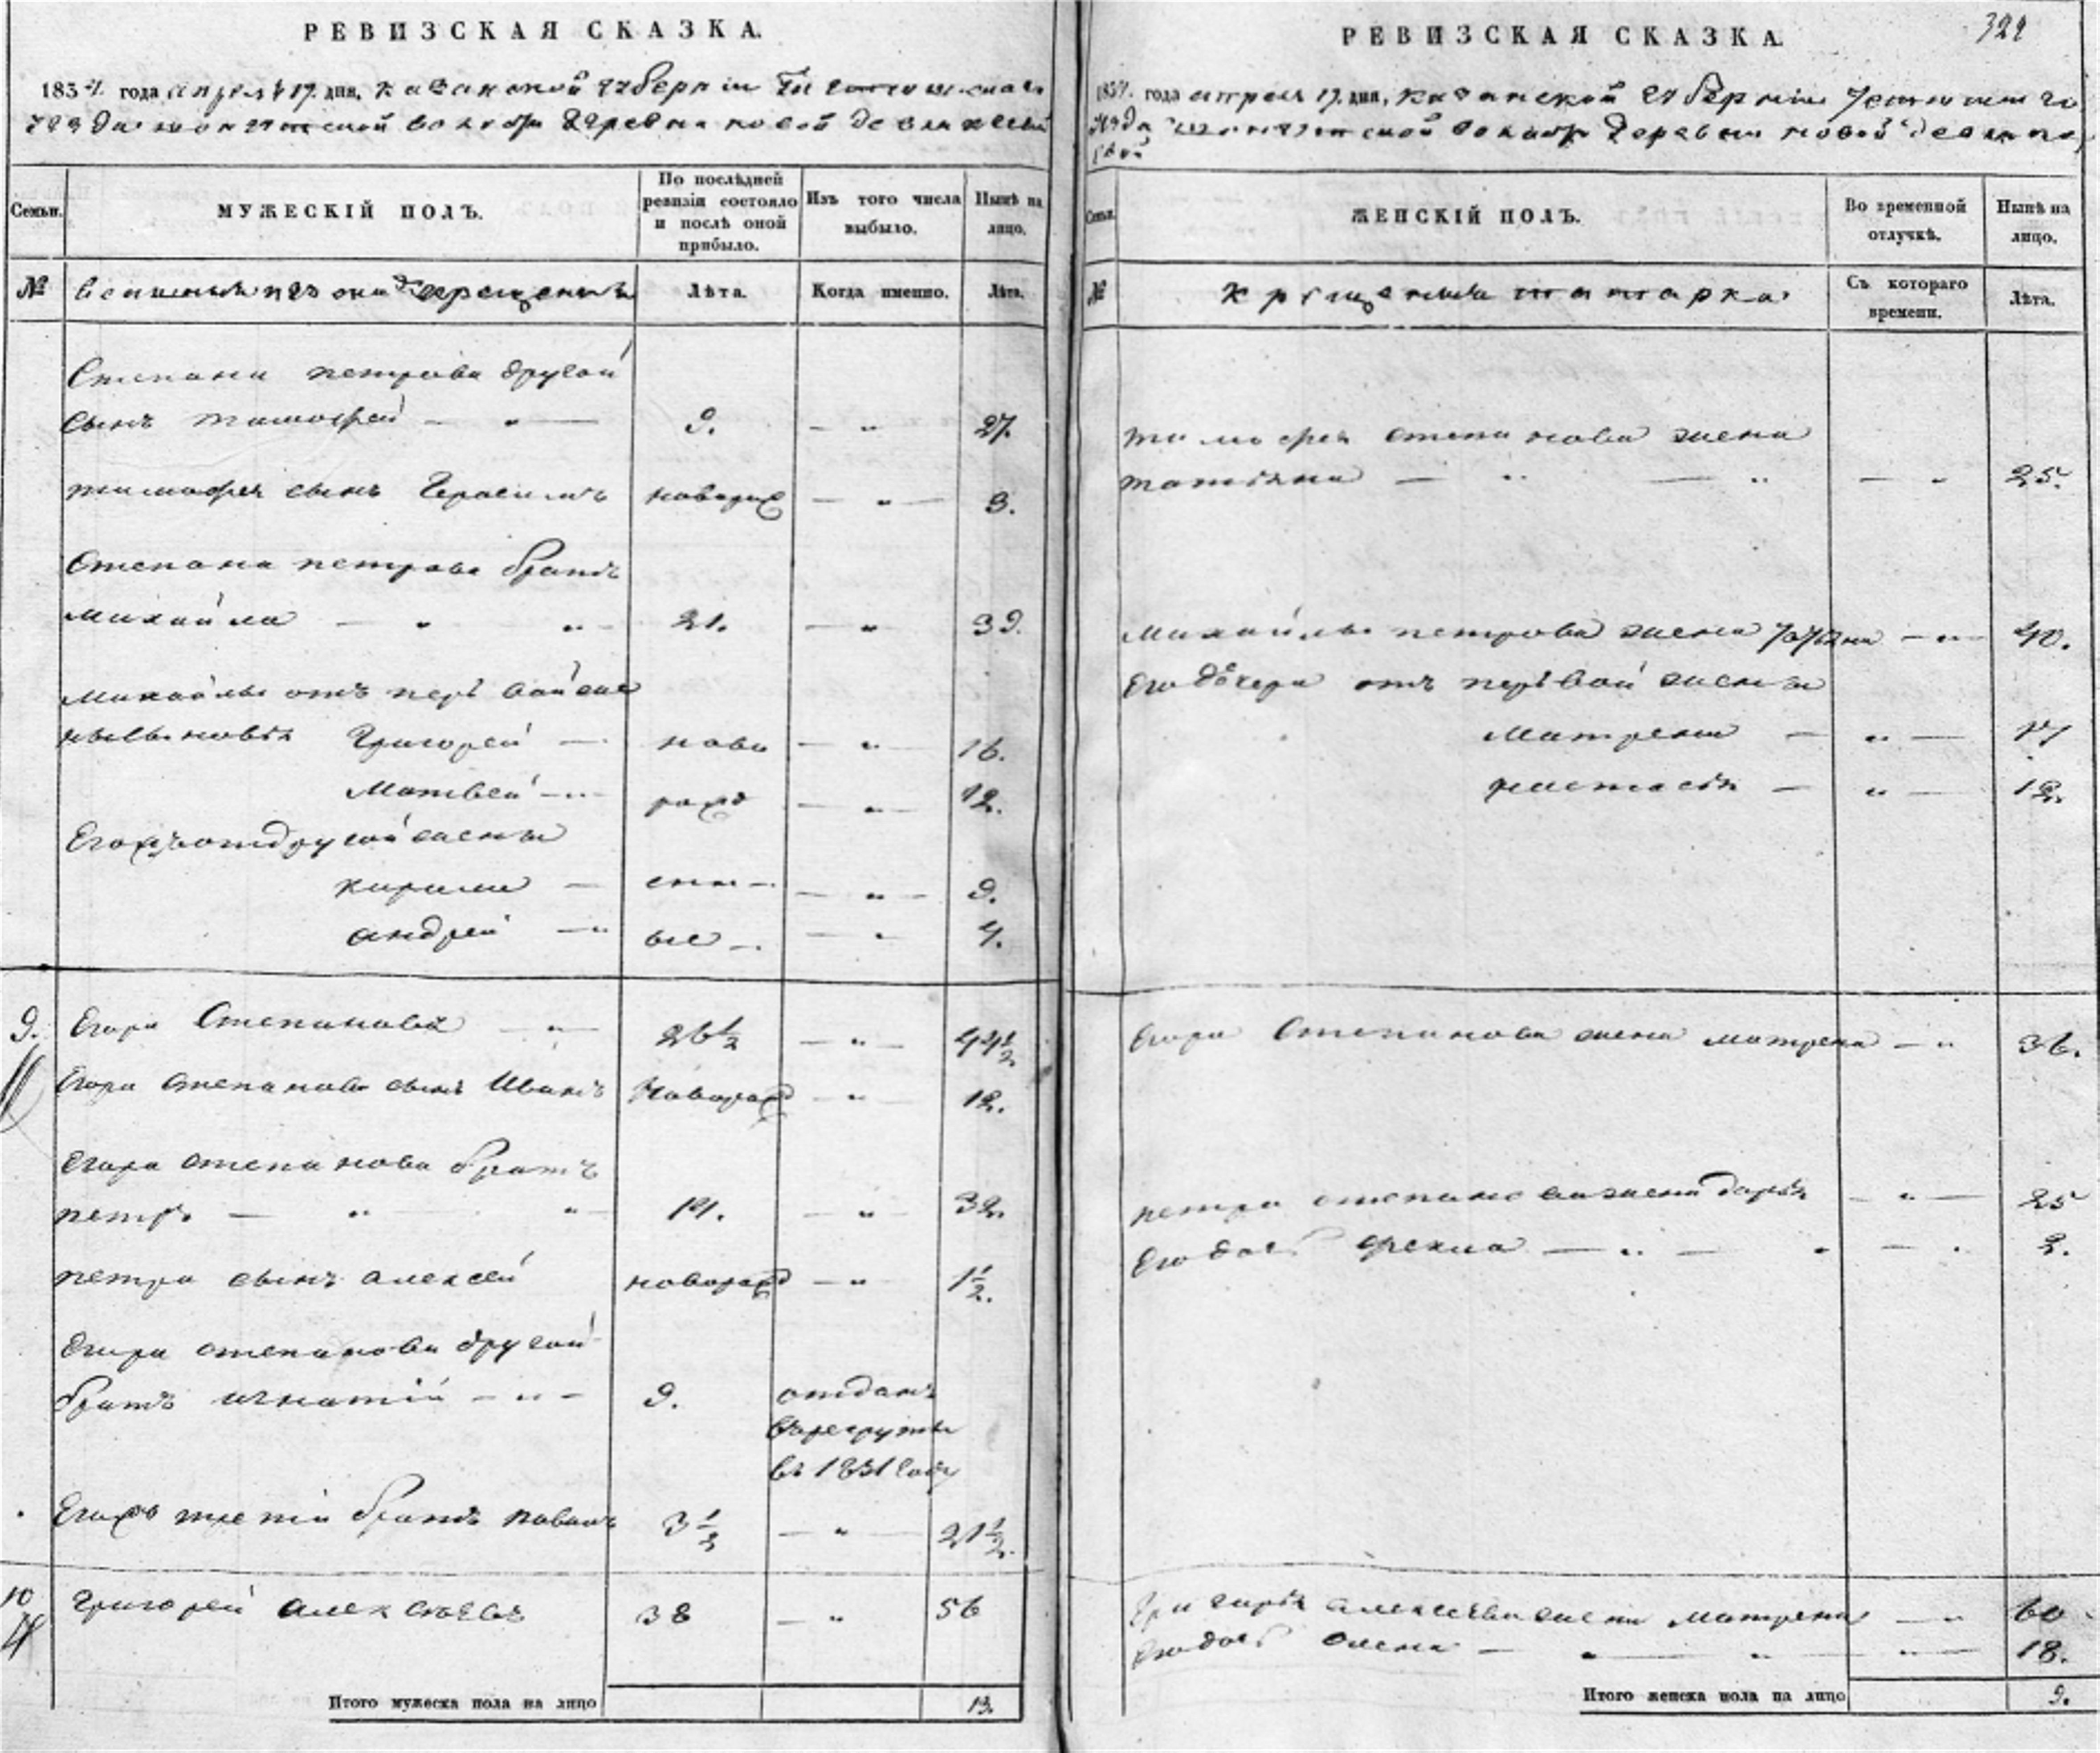 РЕВИЗСКАЯ СКАЗКА.
1834 года апреля 17. дня, казанской губернии
волости деревни новой
Семьи.
МУЖЕСКІЙ ПОЛЪ.
По послѣдней ревизіи состояло и послѣ оной прибыло.
Изъ того числа выбыло.
Нынѣ на лицо.
№
Лѣта.
Когда именно.
Лѣта.
Степана петрова другой
сынъ тимофей — " — 9. — " 27.
тимофея сынъ Герасимъ новорож — " — 3.
Степана петрова братъ
михайла — " " 21. — " 39.
михайлы отъ первой же
ны сыновья Григорей — ново — " — 16.
Матвей — " рожд — " — 12.
Его жъ отдругой жены
кирила — енн — — " — 9.
андрей — " ые — — " — 4.
9. Егоръ Степановъ — " — 26½ — " — 44½.
Егора степанова сынъ Иванъ Новорож — " — 12.
Егора степанова братъ
петръ — " " 14. — " — 32.
петра сынъ алексей новорожд — " — 1½.
Егора степанова другой
братъ игнатій — " — 9. отданъ
в рекруты
въ 1831 году
Егожъ третій братъ павелъ 3½ — " — 21½.
10 григорей алексѣевъ 38 — " 56
Итого мужеска пола на лицо 13.
РЕВИЗСКАЯ СКАЗКА.
1834 года апреля 17. дня, казанской губерніи
волости деревни новой
Семьи.
ЖЕНСКІЙ ПОЛЪ.
Во временной отлучкѣ.
Нынѣ на лицо.
№
крещеныя татарка
Съ котораго времени.
Лѣта.
тимофея степанова жена
татьяна — " — " — " 25.
михайлы петрова жена — " — 40.
Его дочери отъ первой жены
Матрена — " — 17
настасья — " — 12.
Егора Степанова жена матрена — " 36.
петра степанова жена дарья — " — 25
Его дочь фекла — " — " — " 2.
Григорья алексеева жена матрена — " 60
Его дочь алена — " " — " — 18.
Итого женска пола на лицо 9.